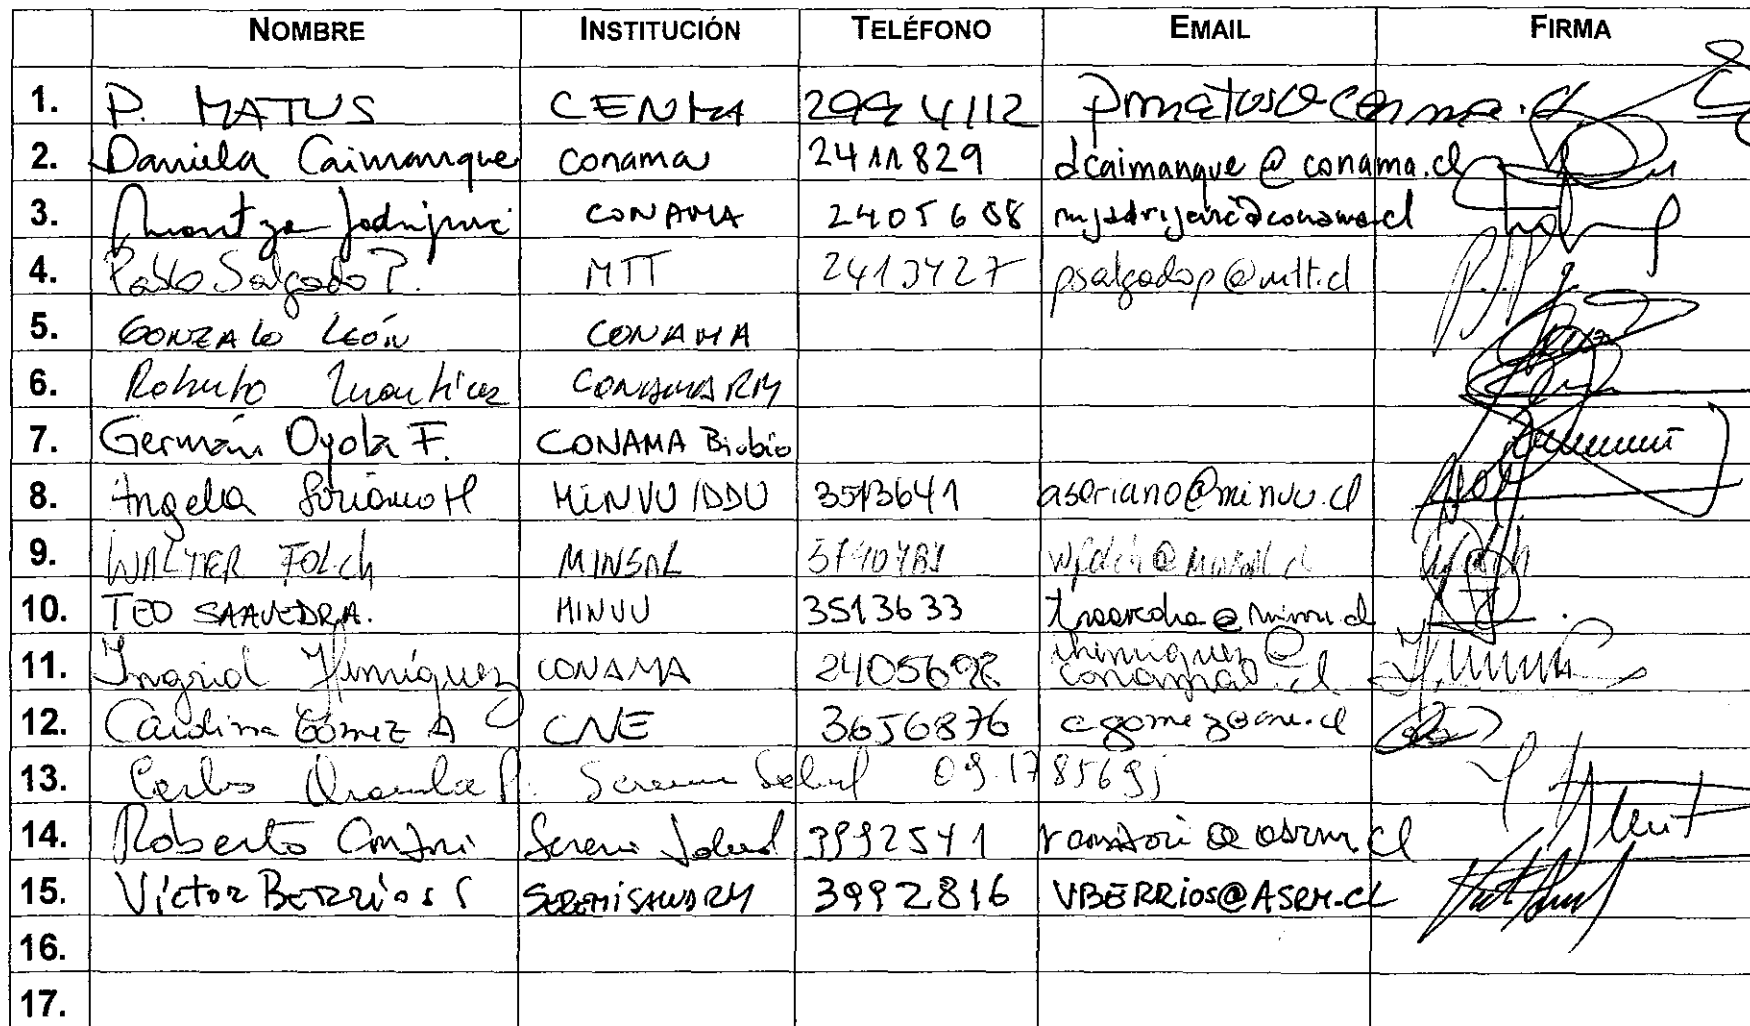 NOMBRE INSTITUCIÓN TELÉFONO EMAIL FIRMA
1. P. MATUS CENMA 2994112 pmatus@cenma.cl
2. Daniela Caimanque Conama 2411829 dcaimanque@conama.cl
3. CONAMA 2405608
4. Pablo Salgado P. MTT 2413427 psalgadop@mtt.cl
5. GONZALO LEÓN CONAMA
6. Roberto CONAMA RM
7. Germán Oyola F. CONAMA Biobio
8. Angela Soriano H MINVU/DDU 3513641 asoriano@minvu.cl
9. WALTER FOLCH MINSAL wfolch@minsal.cl
10. TEO SAAVEDRA. MINVU 3513633
11. Ingrid Henríquez CONAMA 2405698 ihenriquez@
conama.cl
12. Carolina Gómez A CNE 3656876 cgomez@cne.cl
13. Carlos Seremi Salud
14. Roberto Seremi Salud 3992541
15. Víctor BERRíos S SEREMI SALUD RM 3992816 VBERRios@ASRM.CL
16.
17.